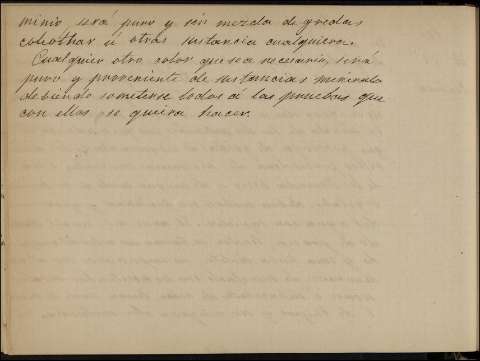 minio será puro y sin mezcla de gredas
colcothar ú otras sustancia cualquiera.
Cualquier otro color que sea necesario, será
puro y proveniente de sustancias minerales
debiendo someterse todas á las pruebas que
con ellas se quiera hacer.